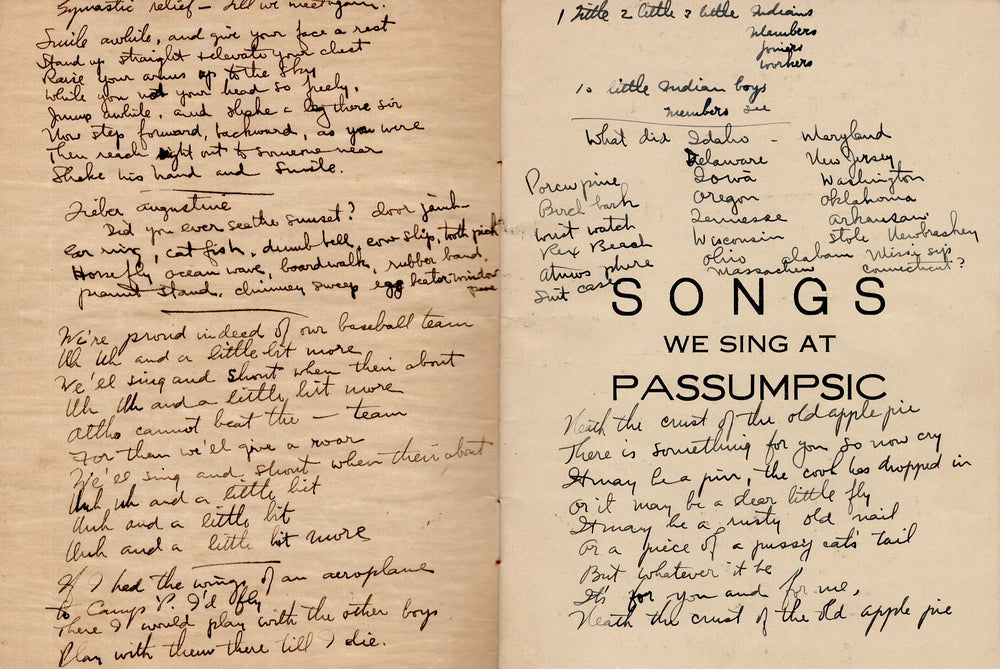 Gymnastic relief – till we meet again.
Smile awhile, and give your face a rest
Stand up straight & elevate your chest
Raise your arms up to the sky
While you nod your head so freely,
Jump awhile, and shake a leg there sir
Now step forward, backward, as you were
Then reach right out to someone near
Shake his hand and smile.
Lieber augustine
Did you ever see the sunset? door jamb–
Ear ring, cat fish, dumb bell, cow slip, tooth pick
Horse fly ocean wave, boardwalk, rubber band,
peanut stand, chimney sweep egg beater window
pane
We're proud indeed of our baseball team
Uh Uh and a little bit more
We'll sing and shout when their about
Uh Uh and a little bit more
Altho cannot beat the — team
For them we'll give a roar
We'll sing and shout when their about
Uuh uh and a little bit
Uuh and a little bit
Uuh and a little bit more
If I had the wings of an aeroplane
to Camp P. I'd fly
There I would play with the other boys
Play with them there till I die.
1 little 2 little 3 little Indians
Members
Joiners
Workers
10 little Indian boys
members see
What did Idaho – Maryland
Delaware New Jersey
Iowa Washington
Oregon Oklahoma
Tennesse Arkansaw
Wisconsin stole Newbraskey
Ohio alabam Missi sip
Massachew Connecticut?
Porcupine
Birch bark
wrist watch
Rex Beach
Atmos phere
Suit case
SONGS
WE SING AT
PASSUMPSIC
Neath the crust of the old apple pie
There is something for you so now cry
It may be a pin, the cook has dropped in
or it may be a dear little fly
It may be a rusty old nail
Or a piece of a pussy cat's tail
But whatever it be
It's for you and for me,
Neath the crust of the old apple pie